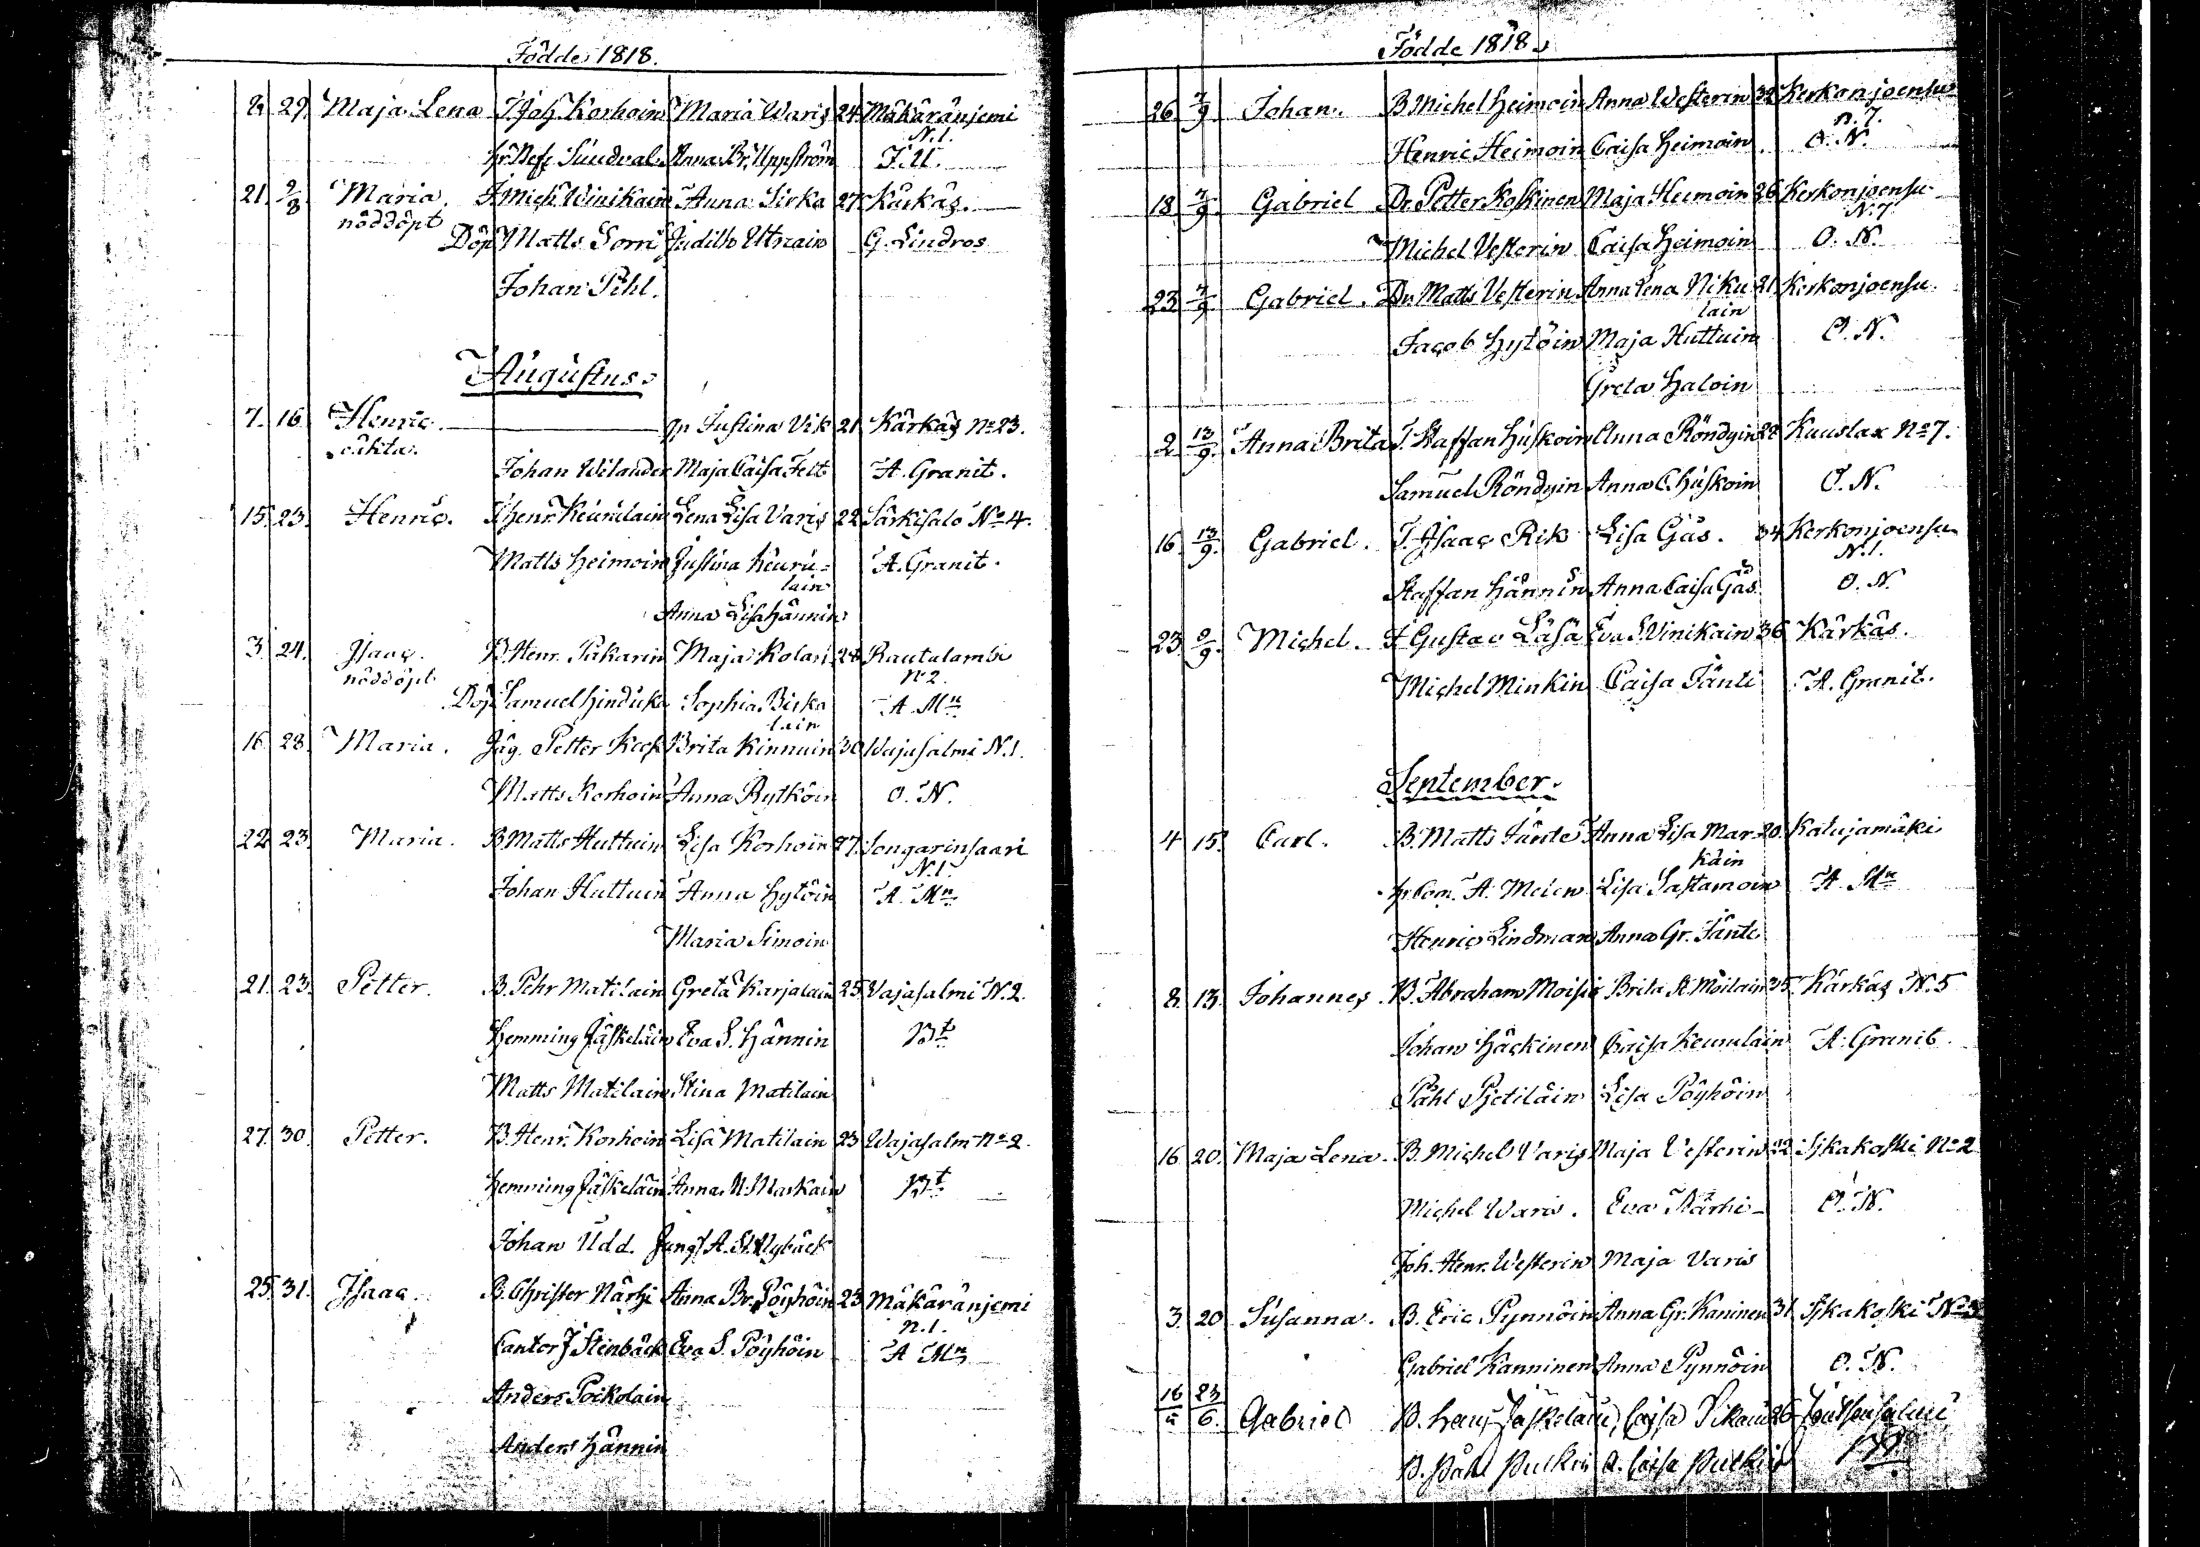 Födde 1818.
29. Maja Lena T. Joh. Korhoin Maria Waris 24 Mäkäränjemi
N.1.
Sundval Anna Br. Uppström F.U.
21. 2/8 Maria. I. Mich. Winikain Anna Sirka 27 Kärkäs.
nöddöpt
Döp. Matts Sorri Judith Utriain G. Lindros
Johan Pihl.
Augustus.
7. 16. Henric. qp. Justina Vik 21 Kärkäs No 23.
oäkta.
Johan Welander Maja Caisa Felt A. Granit.
15. 23. Henric. Henr. Keurulain Lena Lisa Varis 22 Särkisalo No 4.
Matts Heimoin Justina Keuru=
lain A. Granit.
Anna Lisa Hännin
3. 24. Isaac. B. Henr. Pakarin Maja Kolari 24 Rautalambi
nöddöpt No 2.
Döp. Samuel Hinduka Sophia Birka
lain A. Mn
16. 28. Maria. Jäg. Petter Kock Brita Kinnuin 30 Wajasalmi N.1.
Matts Korhoin Anna Rytköin O. N.
22. 23. Maria. B. Matts Huttuin Lisa Korhoin 27. Songarinsaari
N.1.
Johan Huttuin Anna Hytöin A. Mn
Maria Simoin
21. 23. Petter. B. Pehr Matilain Greta Karjalain 25 Vajasalmi N.2.
Hemming Jäskeläin Eva S. Hännin Bt
Matts Matilain Stina Matilain
27. 30. Petter. B. Henr. Korhoin Lisa Matilain 23 Wajasalm No 2.
Hemming Jäskeläin Anna M. Markain Bt
Johan Udd. Jungf. A. St. Nybäck
25. 31. Isaac. B. Christer Närhi Anna Br. Pöyhöin 23 Mäkäränjemi
n.1.
Cantor J Stenbäck Eva S. Pöyhöin A Mn
Anders Poikolain
Anders Hännin
Födde 1818.
26. 7/9. Johan. B Michel Heimoin Anna Westerin 32 Kerkonjoensu
n.7.
Henric Heimoin Caisa Heimoin O. N.
18. 7/9. Gabriel Dr. Petter Koskinen Maja Heimoin 26 Kerkonjoensu
N.7
Michel Vesterin Caisa Heimoin O. N.
23. 7/9. Gabriel. Dr. Matts Vesterin Anna Lena Niku
lain 21 Kerkonjoensu.
Jacob Hytöin Maja Huttuin O. N.
Greta Haloin
2. 13/9. Anna Brita T. Staffan Huskoin Anna Röndyin 28 Kuuslax No 7.
Samuel Röndyin Anna C. Huskoin O. N.
16. 13/9. Gabriel. T. Isaac Rik Lisa Gås. 34 Kerkonjoensu
N.1.
Staffan Hännin Anna Caisa Gås O. N
23. 9/9. Michel. I Gustav Läsä Eva S. Vinikain 36 Kärkäs.
Michel Minkin Caisa Jänti A. Granit.
September.
4. 15. Carl. B. Matts Jänte Anna Lisa Mar-
kain 20. Katujamäki
Hr Com. A. Melen Lisa Sastamoin A Mn
Henric Lindman Anna Gr. Jänte
8. 13. Johannes B. Abraham Moisio Brita St. Moilain 35. Kärkäs N.5
Johan Häckinen Caisa Keurulain A. Granit.
Påhl Pjetiläin Lisa Pöyhöin
16. 20. Maja Lena. B. Michel Varis Maja Vesterin 32 Itkakoski No 2
Michel Waris. Eva Kärhi O. N.
Joh. Henr. Westerin Maja Varis
3. 20. Susanna. B. Eric Pynnöin Anna Gr. Kaninen 31 Itkakoski No 3
Gabriel Kanninen Anna Pynnöin O. N.
16/5 23/6. Gabriel B. Hans Jäskeläin, Caisa Pikain 26
B. Påhl Pulkin A. Caisa Pulkin